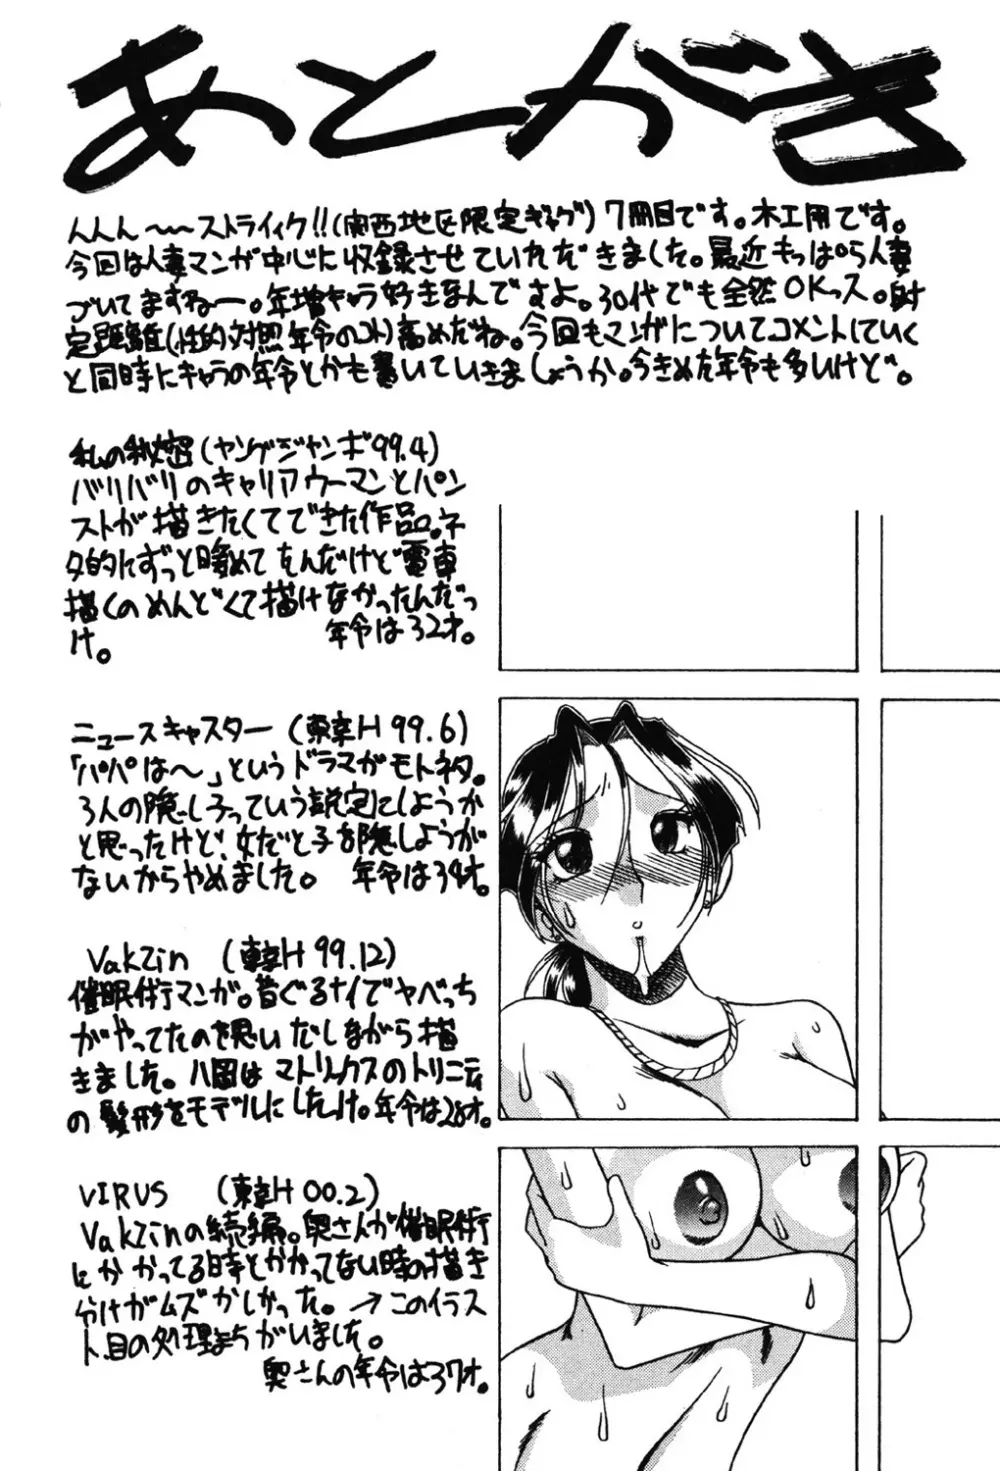 あとがき
んんん〜〜ストライィク!!(関西地区限定ギャグ)7冊目です。木工用です。
今回は人妻マンガ中心に収録させていただきました。最近もっぱら人妻
づいてますねー。年増キャラ好きなんですよ。30代でも全然OKっス。射
定距離(性的対照年令のコト)高めだね。今回もマンガについてコメントしていく
と同時にキャラの年令とかも書いていきましょうか。今きめた年令も多いけど。
私の秘密(ヤングジャンボ99.4)
バリバリのキャリアウーマンとパン
ストが描きたくてできた作品。ネ
タ的にずっと暖めてたんだけど電車
描くのめんどくて描けなかったんだっ
け。 年令は32才。
ニュースキャスター(東幸H 99.6)
「パパは〜」というドラマがモトネタ。
3人の隠し子っていう設定にしようか
と思ったけど、女だと子を隠しようが
ないからやめました。 年令は34才。
Vakzin (東幸H 99.12)
催眠術マンガ。昔ぐるナイでヤベっち
がやってたのを思いだしながら描
きました。八岡はマトリックスのトリニティ
の髪形をモデルにしたっけ。年令は28才。
VIRUS (東幸H 00.2)
Vakzinの続編。奥さんが催眠術
にかかってる時とかかってない時の描き
分けがムズかしかった。→このイラス
ト、目の処理まちがいました。
奥さんの年令は37才。